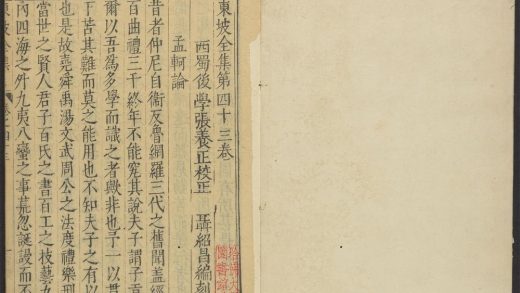 東坡全集第四十三卷
西蜀後學張養正校正 聶紹昌編刻
孟軻論
昔者仲尼自衛反魯網羅三代之舊聞蓋經
百曲禮三千終年不能究其說夫子謂子貢
爾以吾為多學而識之者歟非也予一以貫
于苦其難而莫之能用也不知夫子之有以
也是故堯舜禹湯文武周公之法度禮樂刑
當世之賢人君子百氏之書百工之技藝九
內四海之外九夷八蠻之事荒忽誕謾而不